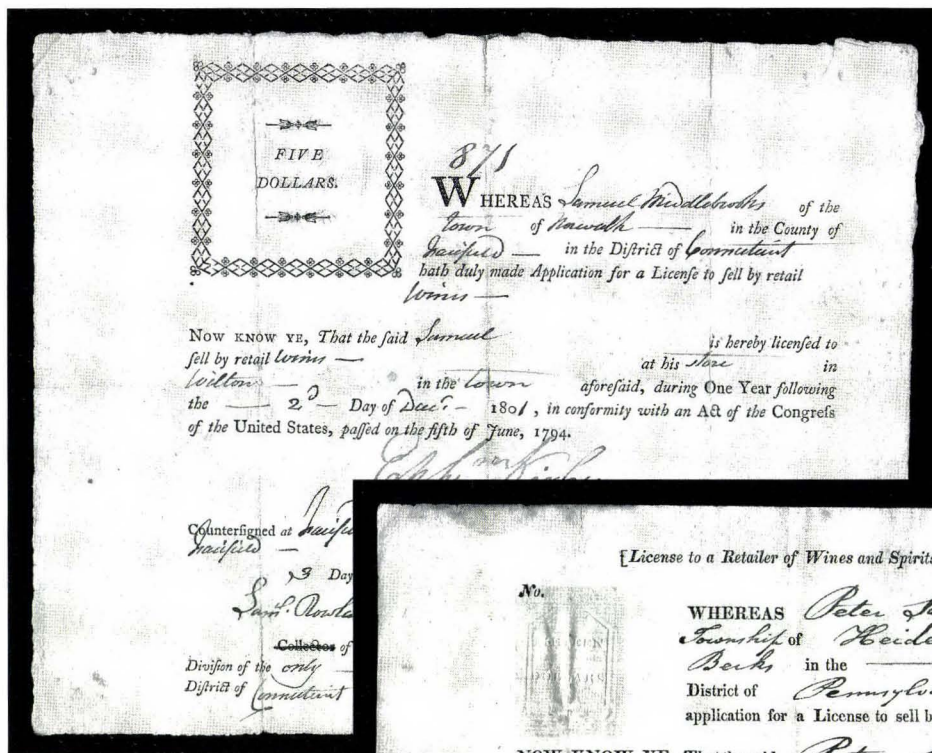 FIVE
DOLLARS.
871
WHEREAS Samuel Middlebrooks of the
town of Norwalk — in the County of
Fairfield — in the Diſtrict of Connecticut
hath duly made Application for a Licenſe to ſell by retail
Wines —
NOW KNOW YE, That the ſaid Samuel
is hereby licenſed to
ſell by retail Wines — at his store in
Wilton — in the town aforeſaid, during One Year following
the — 2d — Day of Decr. — 1801, in conformity with an Act of the Congreſs
of the United States, paſſed on the fifth of June, 1794.
Counterſigned at
Fairfield —
3 Day
Saml. Rowla
Collector of
Diviſion of the only
Diſtrict of Connecticut
[License to a Retailer of Wines and Spirits
No.
WHEREAS Peter
Township of Heide
Berks in the —
District of Pennsylv
application for a License to sell b
NOW KNOW YE, That the said Peter